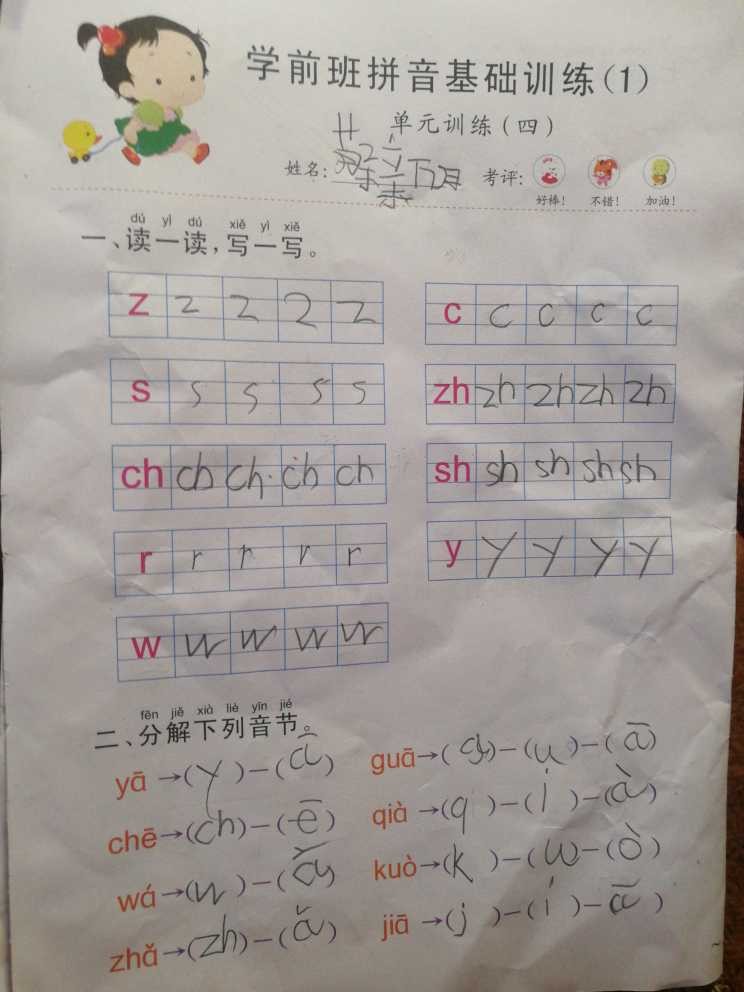 学前班拼音基础训练(1)
单元训练(四)
姓名: 考评: 好棒! 不错! 加油!
dú yì dú xiě yì xiě
一、读一读,写一写。
z z z z z c c c c c
s s s s s zh zh zh zh zh
ch ch ch ch ch sh sh sh sh sh
r r r r r y y y y y
w w w w w
fēn jiě xià liè yīn jié
二、分解下列音节。
yā→(y)-(ā) guā→(g)-(u)-(ā)
chē→(ch)-(ē) qià→(q)-(i)-(à)
wá→(w)-( ) kuò→(k)-(u)-(ò)
zhǎ→(zh)-(ǎ) jiā→(j)-(i)-(ā)